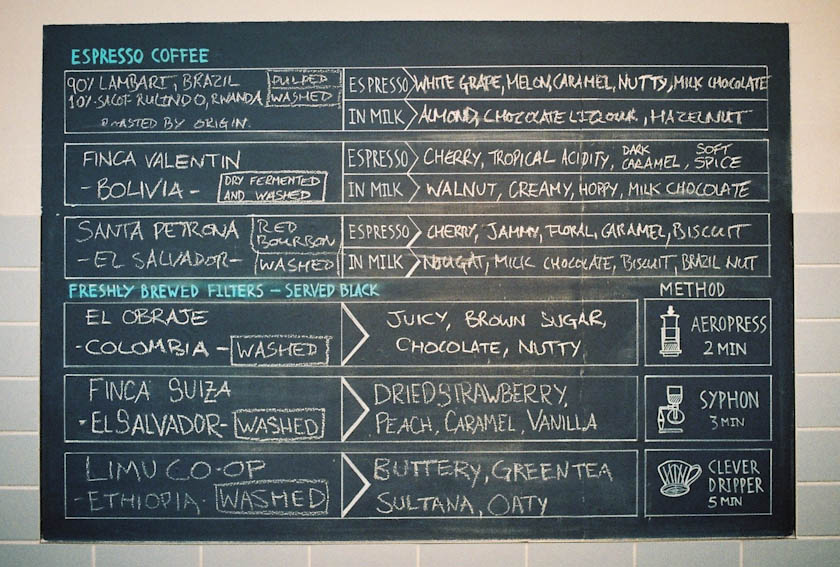 ESPRESSO COFFEE
90% LAMBARI, BRAZIL PULPED
10% SACOF RULINDO, RWANDA WASHED
ROASTED BY ORIGIN
ESPRESSO WHITE GRAPE, MELON, CARAMEL, NUTTY, MILK CHOCOLATE
IN MILK ALMOND, CHOCOLATE LIQOUR, HAZELNUT
FINCA VALENTIN
- BOLIVIA - DRY FERMENTED
AND WASHED
ESPRESSO CHERRY, TROPICAL ACIDITY, DARK CARAMEL, SOFT SPICE
IN MILK WALNUT, CREAMY, HOPPY, MILK CHOCOLATE
SANTA PETRONA RED BOURBON
- EL SALVADOR - WASHED
ESPRESSO CHERRY, JAMMY, FLORAL, CARAMEL, BISCUIT
IN MILK NOUGAT, MILK CHOCOLATE, BISCUIT, BRAZIL NUT
FRESHLY BREWED FILTERS - SERVED BLACK METHOD
EL OBRAJE
- COLOMBIA - WASHED
JUICY, BROWN SUGAR,
CHOCOLATE, NUTTY
AEROPRESS
2 MIN
FINCA SUIZA
- EL SALVADOR - WASHED
DRIED STRAWBERRY,
PEACH, CARAMEL, VANILLA
SYPHON
3 MIN
LIMU CO-OP
- ETHIOPIA - WASHED
BUTTERY, GREEN TEA
SULTANA, OATY
CLEVER
DRIPPER
5 MIN